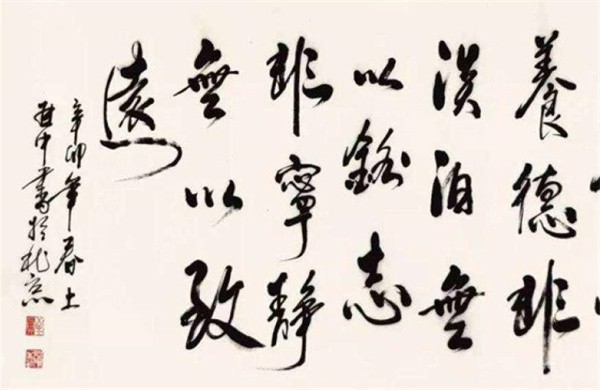 養德非
淡泊無
以銘志
非寧靜
無以致
遠
辛卯年春
中書於北京